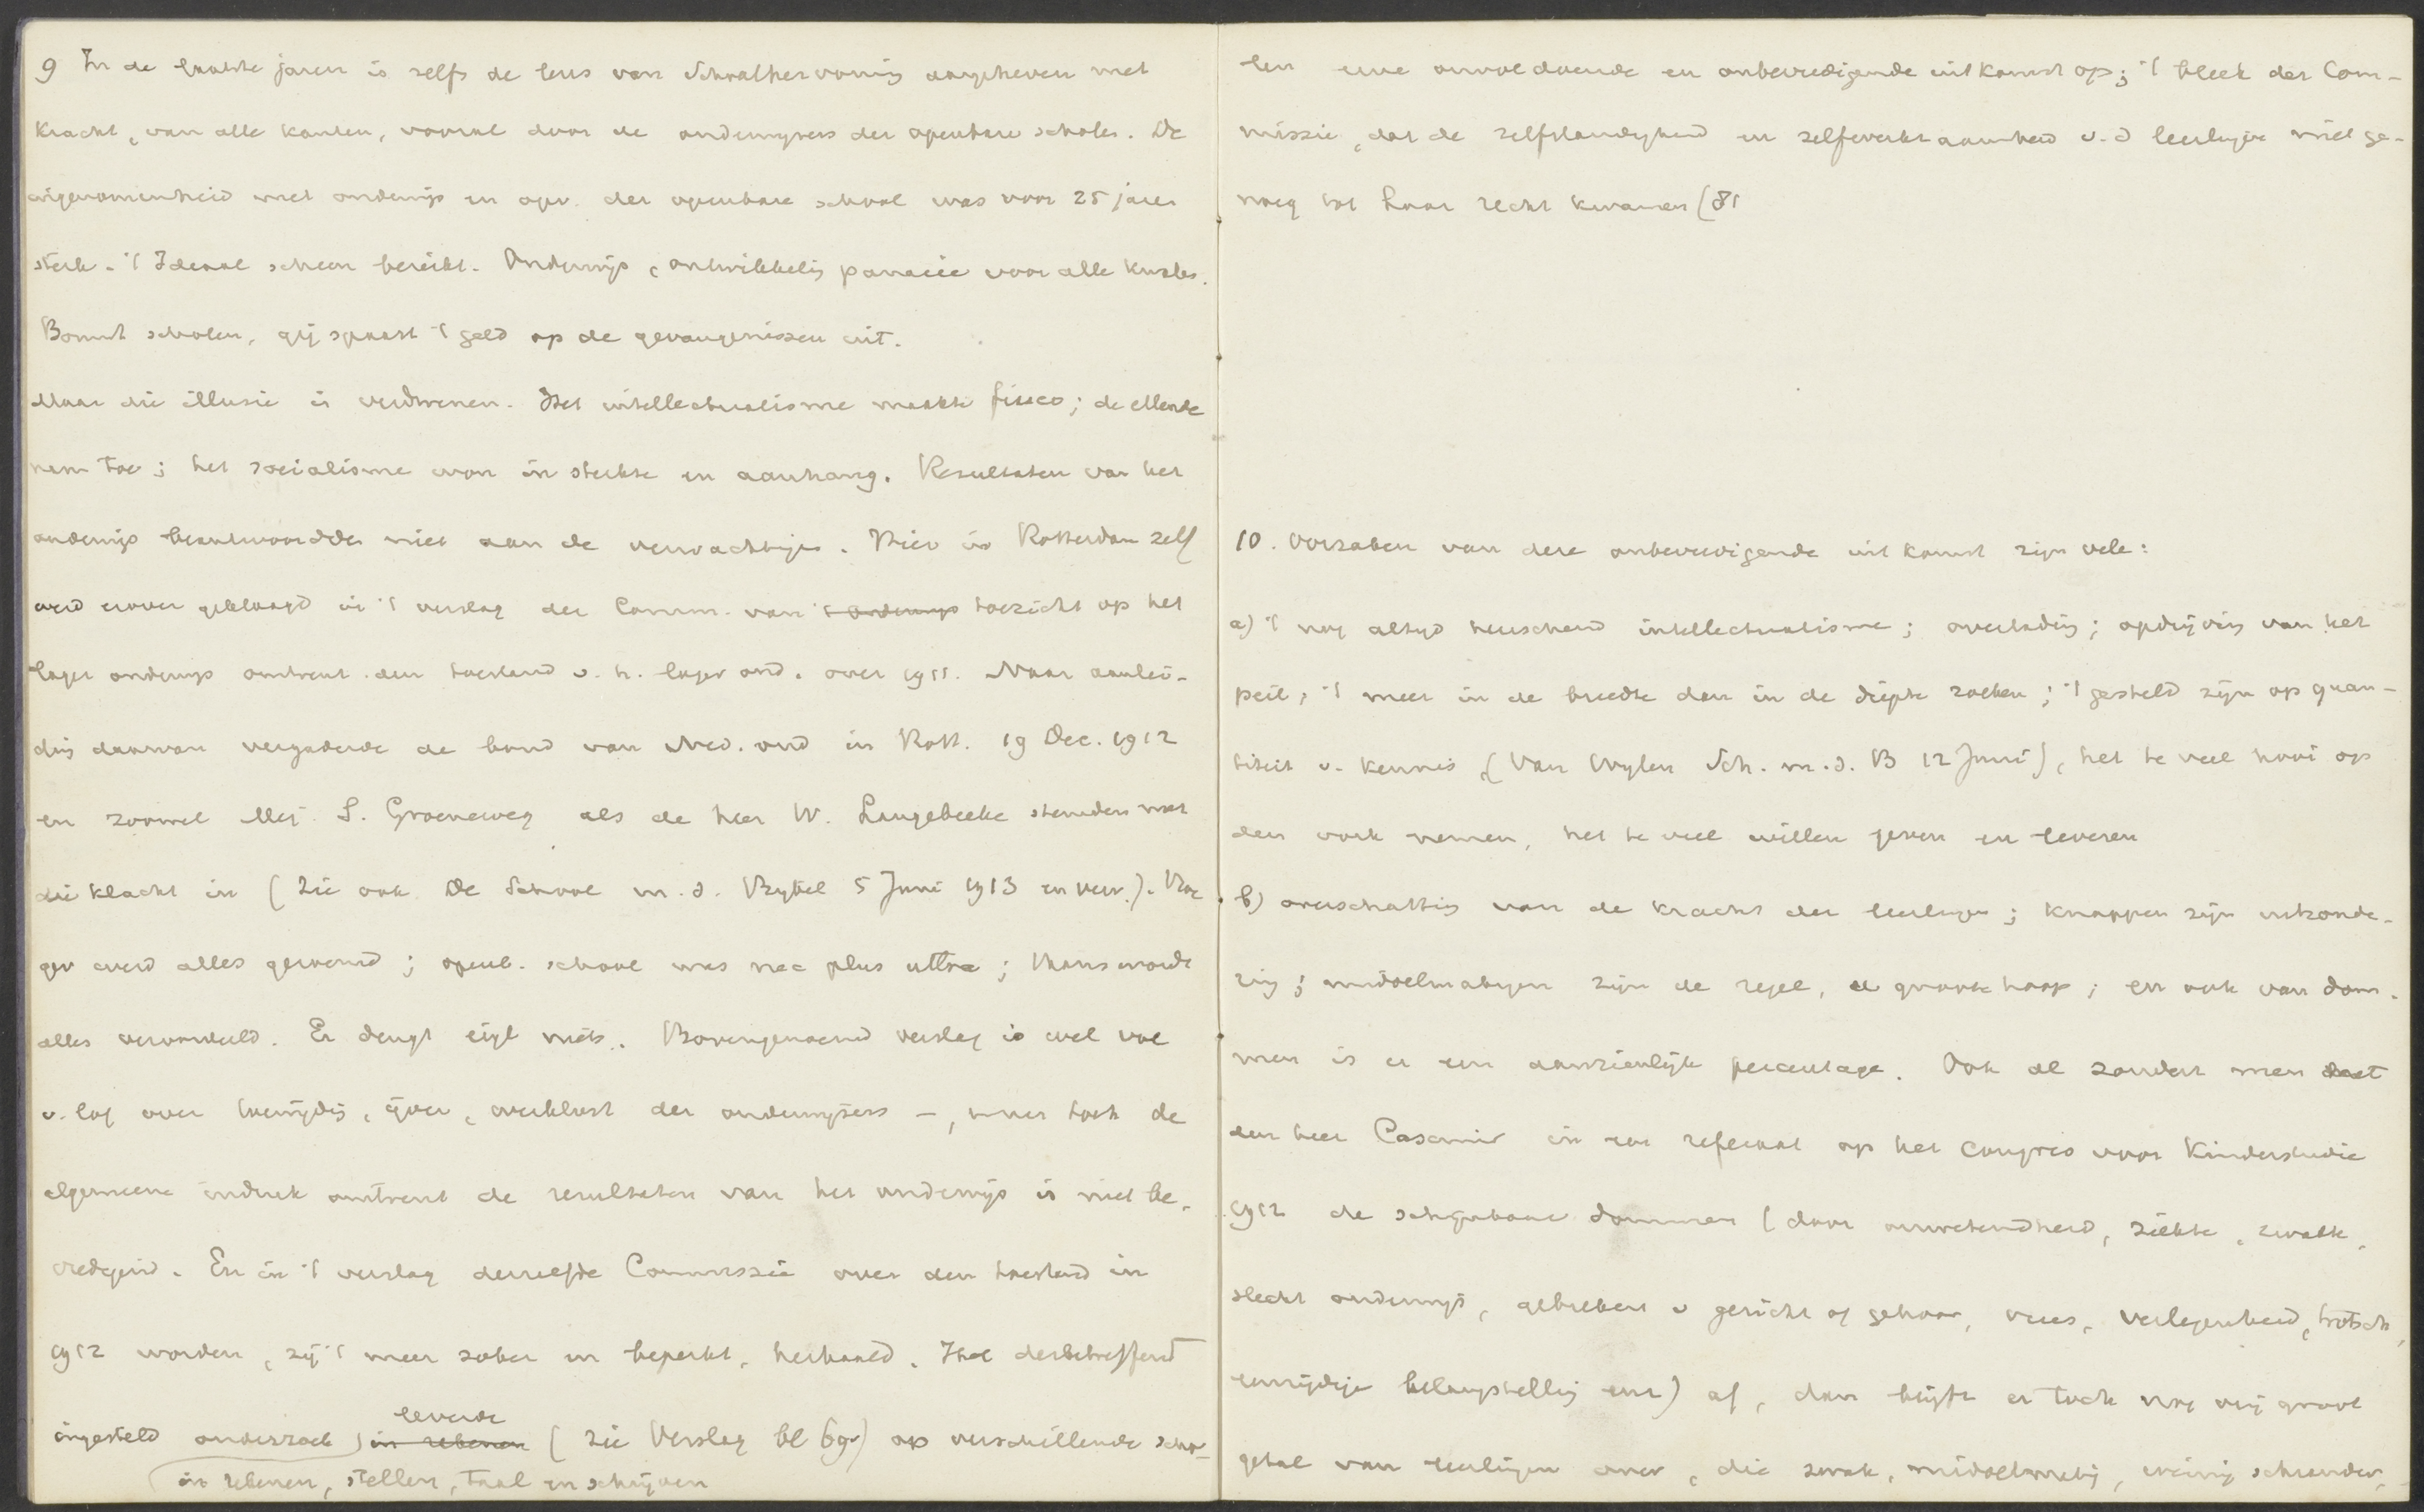 9 In de laatste jaren is zelfs de leus van Schoolhervorming aangeheven met
kracht, van alle kanten, vooral door de onderwijzers der openbare scholen. De
ingenomenheid met onderwijs en opv. der openbare school was voor 25 jaren
sterk. 't Ideaal scheen bereikt. Onderwijs, ontwikkeling panacee voor alle kwalen.
Bouwt scholen, gij spaart 't geld op de gevangenissen uit.
Maar die illusie is verdwenen. Het intellectualisme maakte fiasco; de ellende
nam toe; het socialisme won in sterkte en aanhang. Resultaten van het
onderwijs beantwoordden niet aan de verwachtingen. Hier in Rotterdam zelf
werd erover geklaagd in 't verslag der Comm. van 't onderwijs toezicht op het
lager onderwijs omtrent den toestand v. h. lager ond. over 1911. Naar aanlei-
ding daarvan vergaderde de bond van Ned. ond in Rott. 19 Dec. 1912
en zoowel Mej. S. Groeneweg als de heer W. Langebeeke stemden met
die klacht in (zie ook De School m. d. Bijbel 5 Juni 1913 en verv.). Vroe
ger werd alles geroemd; openb. school was nec plus ultra; thans wordt
alles veroordeeld. Er deugt eigl niets. Bovengenoemd verslag is wel vol
v. lof over toewijding, ijver, werklust der onderwijzers —, maar toch de
algemeene indruk omtrent de resultaten van het onderwijs is niet be-
vredigend. En in 't verslag derzelfde Commissie over den toestand in
1912 worden, zij 't meer sober en beperkt, herhaald. Het desbetreffend
leverde
ingesteld onderzoek in rekenen (zie Verslag bl 69v) op verschillende scho-
in rekenen, stellen, taal en schrijven
len eene onvoldoende en onbevredigende uitkomst op; 't bleek der Com-
missie, dat de zelfstandigheid en zelfwerkzaamheid v. d leerlingen niet ge-
noeg tot haar recht kwamen (81
10. Oorzaken van deze onbevredigende uitkomst zijn vele:
a) 't nog altijd heerschend intellectualisme; overlading; opdrijving van het
peil; 't meer in de breedte dan in de diepte zoeken; 't gesteld zijn op quan-
titeit v. kennis (Van Wijlen Sch. m. d. B 12 Juni), het te veel hooi op
den vork nemen, het te veel willen geven en leveren
b) overschatting van de kracht der leerlingen; knappen zijn uitzonde-
ring; middelmatigen zijn de regel, de groote hoop; en ook van dom-
men is er een aanzienlijk percentage. Ook al zondert men met
den heer Casimir in zijn referaat op het congres voor Kinderstudie
1912 de schijnbaar dommen (door onwetendheid, ziekte, zwakte,
slecht onderwijs, gebreken v gezicht of gehoor, vrees, verlegenheid, trotsch,
eenzijdige belangstelling enz) af, dan blijft er toch nog vrij groot
getal van leerlingen over, die zwak, middelmatig, weinig schrander,